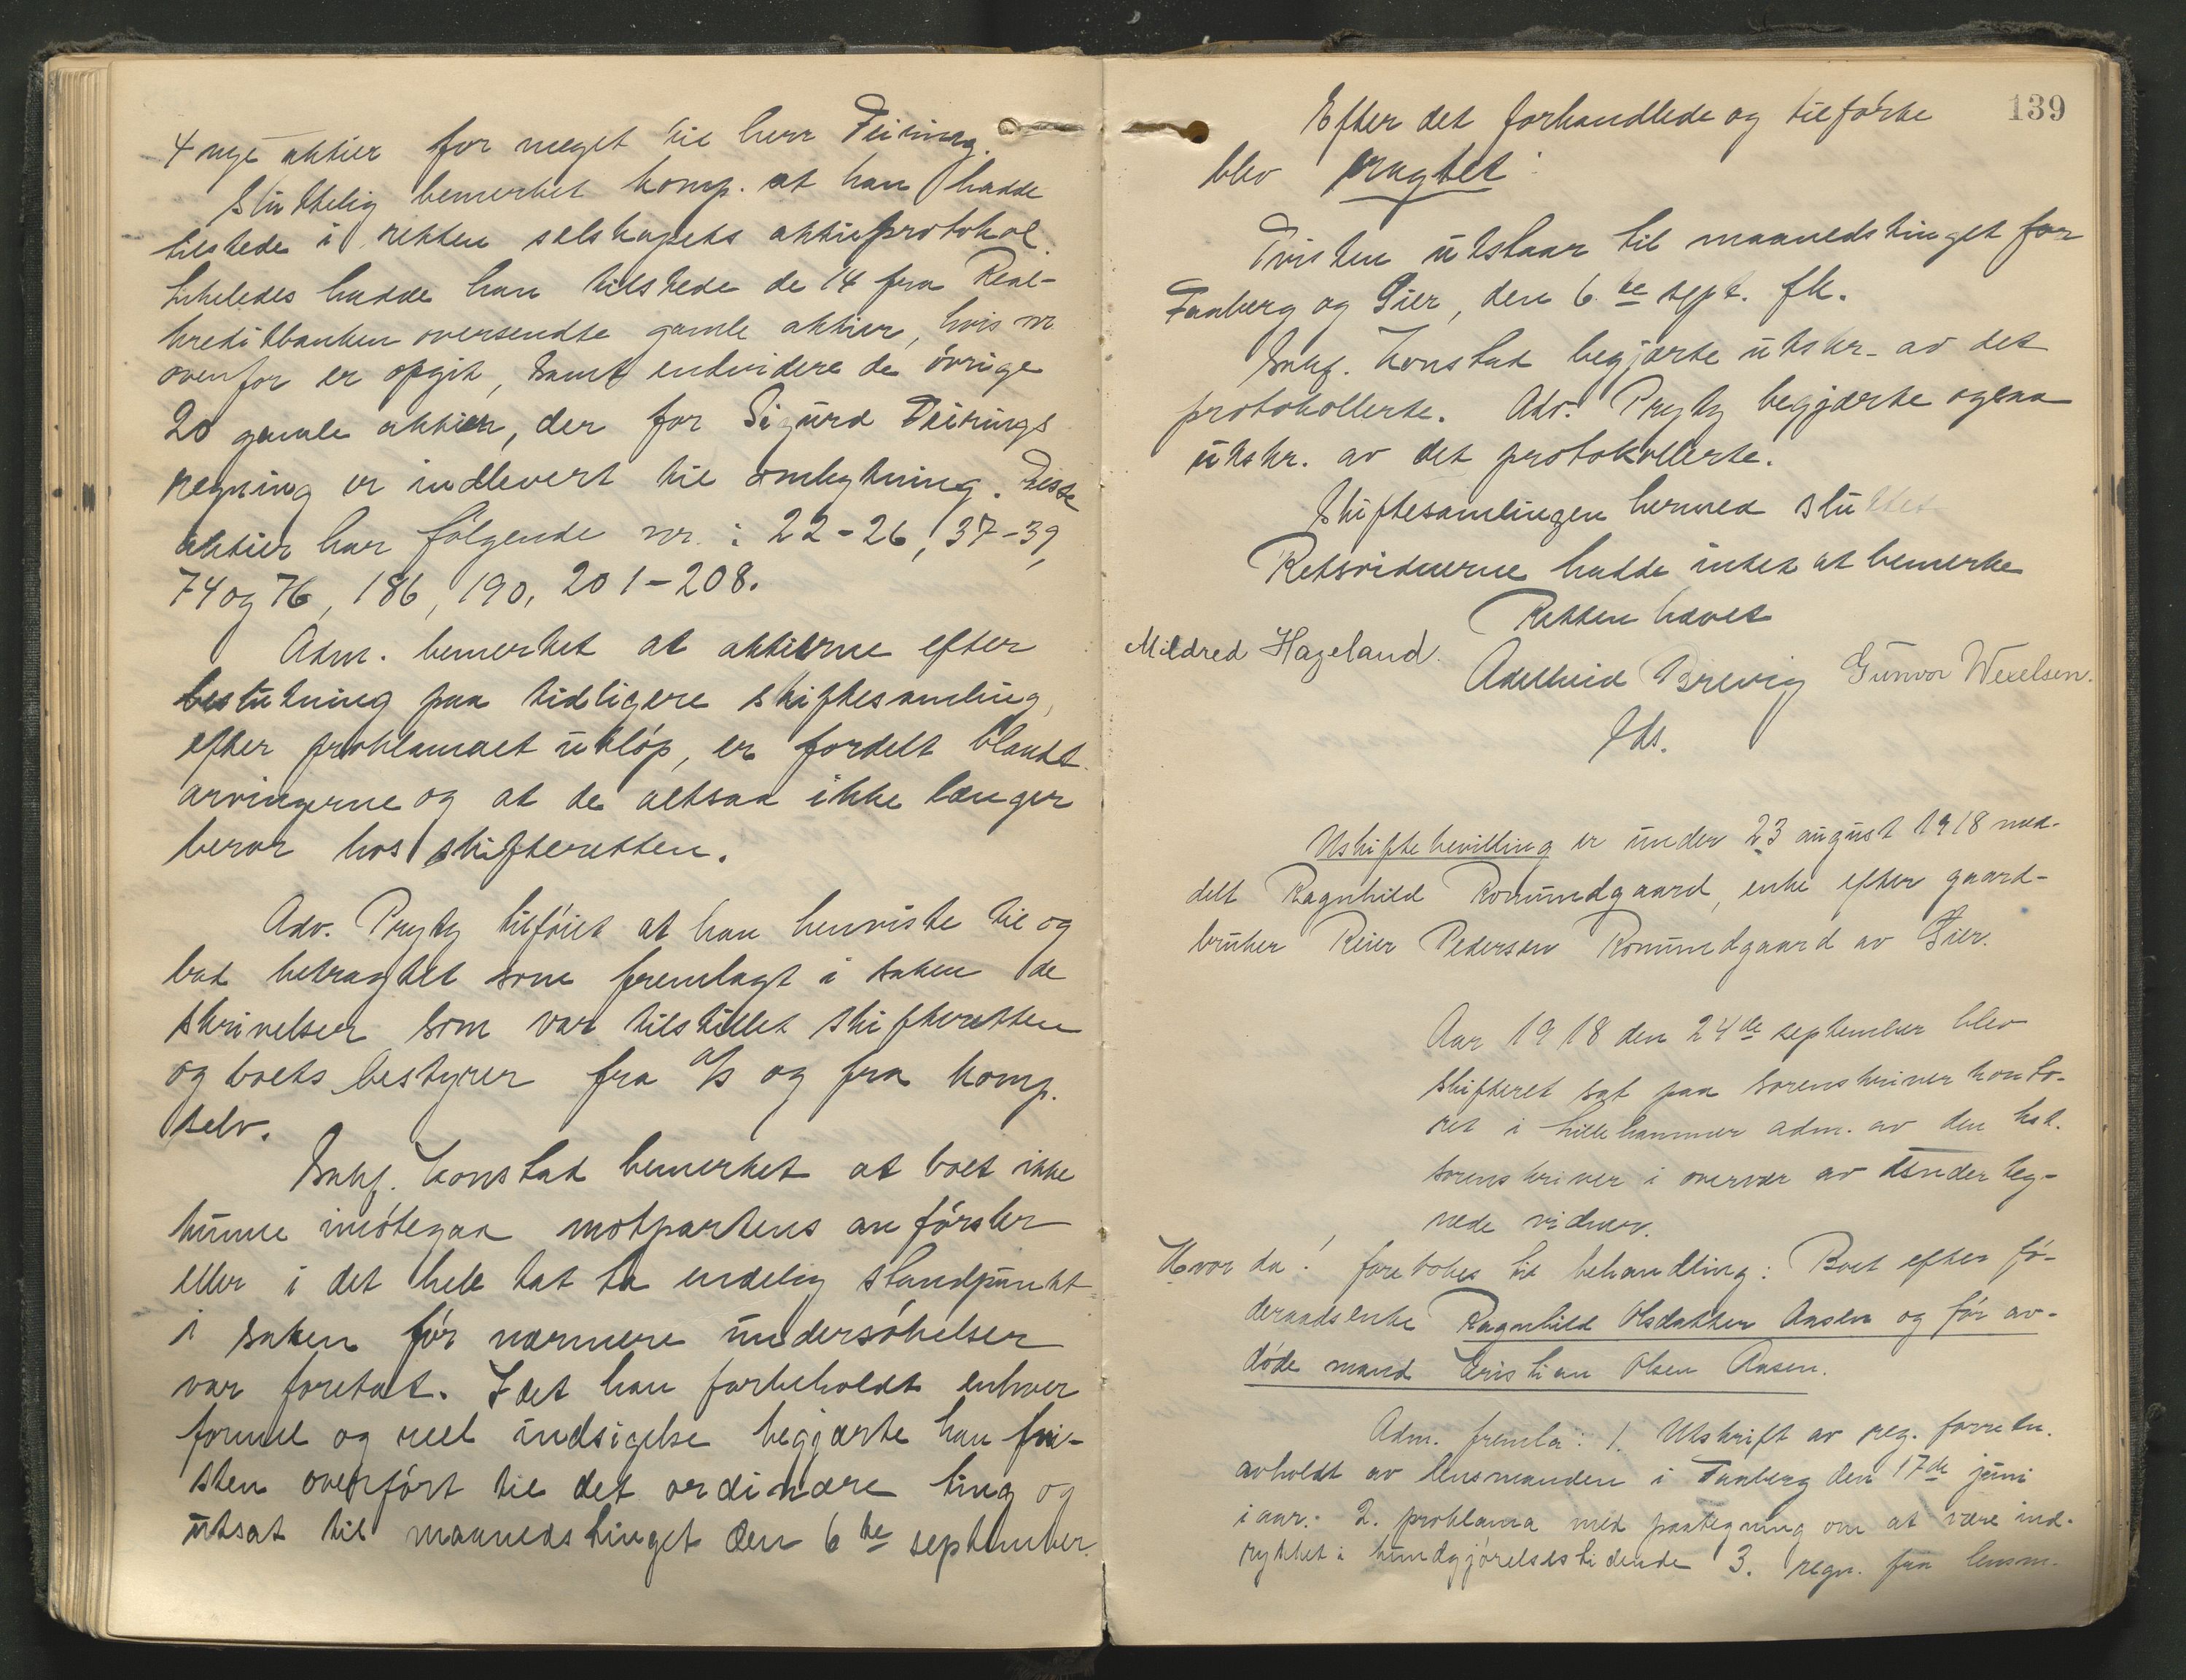 4 nye aktier for meget til herr Feiring.
Sluttelig bemerket komp. at han hadde
tilstede i retten selskapets aktieprotokol.
Likeledes hadde han tilstede de 14 fra Real-
kreditbanken oversendte gamle aktier, hvis nr
ovenfor er opgit, samt endvidere de övrige
20 gamle aktier, der for Sigurd Feirings
regning er indlevert til ombytning. Disse
aktier har fölgende nr. : 22-26, 37-39,
74 og 76, 186, 190, 201-208.
Adm. bemerket at aktierne efter
beslutning paa tidligere skiftesamling,
efter proklamaet utlöp, er fordelt blandt
arvingerne og at de altsaa ikke længer
beror hos skifteretten.
Adv. Pryty tilföiet at han henviste til og
bad betragtet som fremlagt i saken de
skrivelser som var tilstillet skifteretten
og boets bestyrer fra A/S og fra komp.
selv.
Sakf. Konstad bemerket at boet ikke
kunne imötegaa motpartens anförsler
eller i det hele tat ta endelig standpunkt
i saken för nærmere undersökelser
var foretat. Idet han forbeholdt enhver
formel og reel indsigelse begjærte han tvi-
sten overfört til det ordinære ting og
utsat til maanedstinget den 6te september.
139
Efter det forhandlede og tilförte
blev eragtet:
Tvisten utstaar til maanedstinget for
Faaberg og Gier, den 6te sept. fk.
Sakf. Konstad begjærte utskr. av det
protokollerte. Adv. Pryty begjærte ogsaa
utskr. av det protokollerte.
Skiftesamlingen hermed sluttet
Retsvidnerne hadde intet at bemerke
Retten hævet
Mildred Hageland. Adelheid Brevig Gunvor Wexelsen.
Eds.
Uskiftebevilling er under 23 august 1918 med-
delt Ragnhild Romundgaard, enke efter gaard-
bruker Reier Pedersen Romundgaard av Gier.
Aar 1918 den 24de september blev
skifteret sat paa sorenskriverkonto-
ret i Lillehammer adm. av den kst.
sorenskriver i overvær av underteg-
nede vidner.
Hvorda! foretokes til behandling: Boet efter fö-
deraadsenke Ragnhild Olsdatter Aasen og för av-
döde mand Kristian Olsen Aasen.
Adm. fremla: 1. Utskrift av reg. forretn.
avholdt av lensmanden i Faaberg den 17de juni
iaar. 2. proklama med paategning om at være ind-
rykket i kundgjörelsestidende 3. regn. fra lensm-